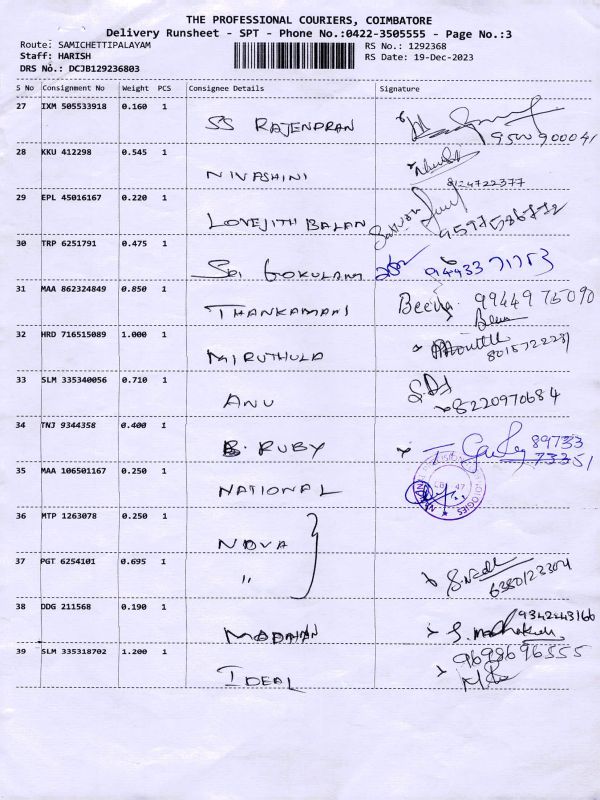 THE PROFESSIONAL COURIERS, COIMBATORE
Delivery Runsheet - SPT - Phone No.:0422-3505555 - Page No.:3
Route: SAMICHETTIPALAYAM
RS No.: 1292368
Staff: HARISH
RS Date: 19-Dec-2023
DRS No.: DCJB129236803
S No Consignment No Weight PCS Consignee Details Signature
27 IXM 505533918 0.160 1
SS RAJENDRAN
9500900041
28 KKU 412298 0.545 1
NIVASHINI
8124722377
29 EPL 45016167 0.220 1
LOVEJITH BALAN
30 TRP 6251791 0.475 1
SRI GOKULAM
9443371753
31 MAA 862324849 0.850 1
THANKAMANI
Beena 9944975090
32 HRD 716515089 1.000 1
MIRUTHULA
8015722231
33 SLM 335340056 0.710 1
ANU
8220970684
34 TNJ 9344358 0.400 1
B. RUBY
89733
73351
35 MAA 106501167 0.250 1
NATIONAL
36 MTP 1263078 0.250 1
NOVA
37 PGT 6254101 0.695 1
"
6380123304
38 DDG 211568 0.190 1
MADHAN
9342243166
39 SLM 335318702 1.200 1
IDEAL
9698696555